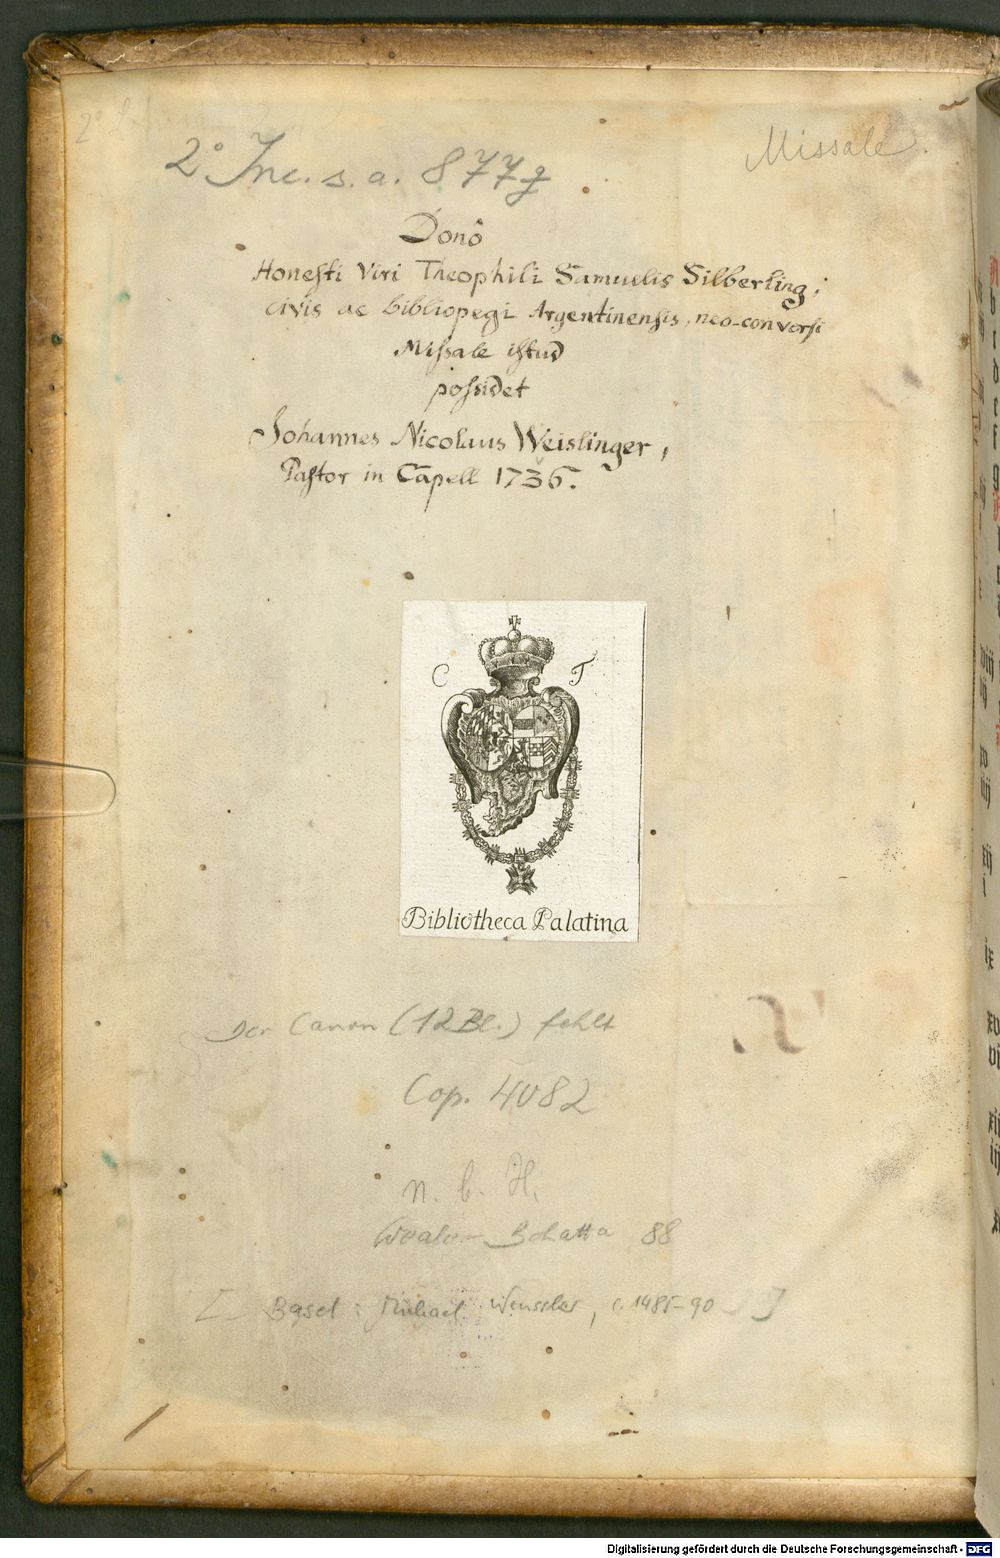 2° Inc. s. a. 877g
Missale.
Donô
Honesti Viri Theophili Samuelis Silberling;
civis ac bibliopegi Argentinensis, neo-conversi
Missale istud
possidet
Johannes Nicolaus Weislinger,
Pastor in Capell 1736.
C T
Bibliotheca Palatina
Der Canon (12 Bl.) fehlt
Cop. 4082
n. b. H.
Weale-Bohatta 88
[Basel: Michael Wenssler, c. 1485-90]
Digitalisierung gefördert durch die Deutsche Forschungsgemeinschaft - DFG